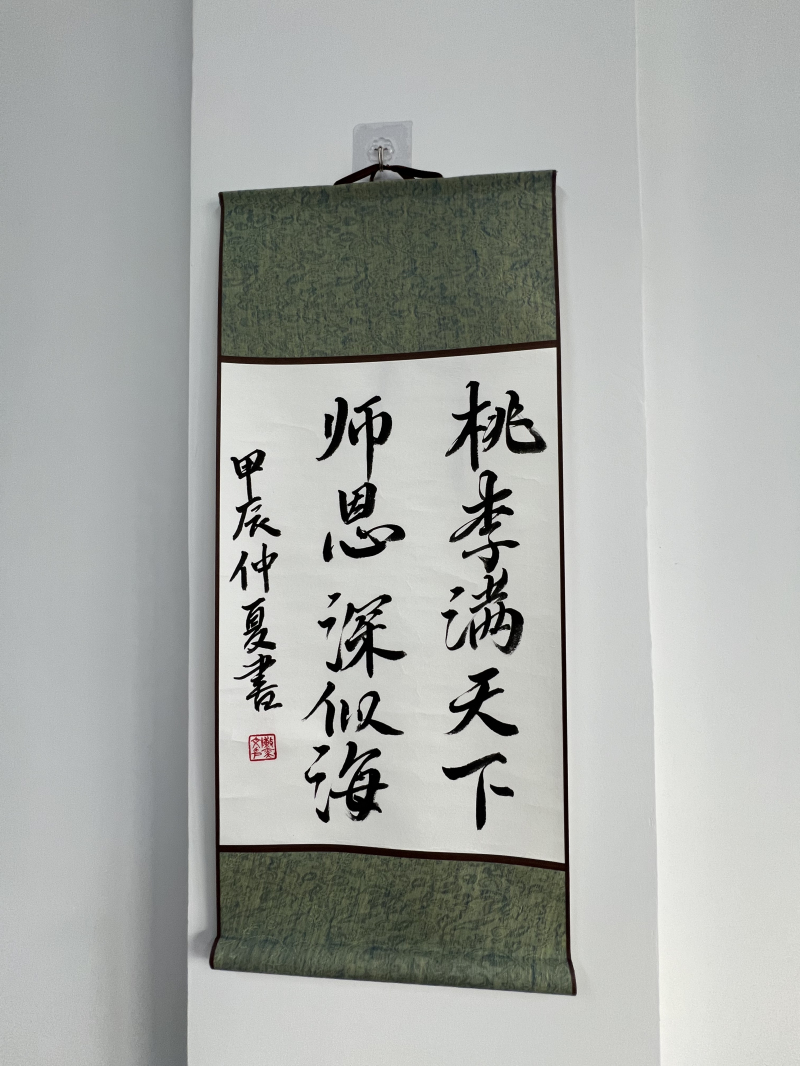 桃李满天下
师恩深似海
甲辰仲夏書